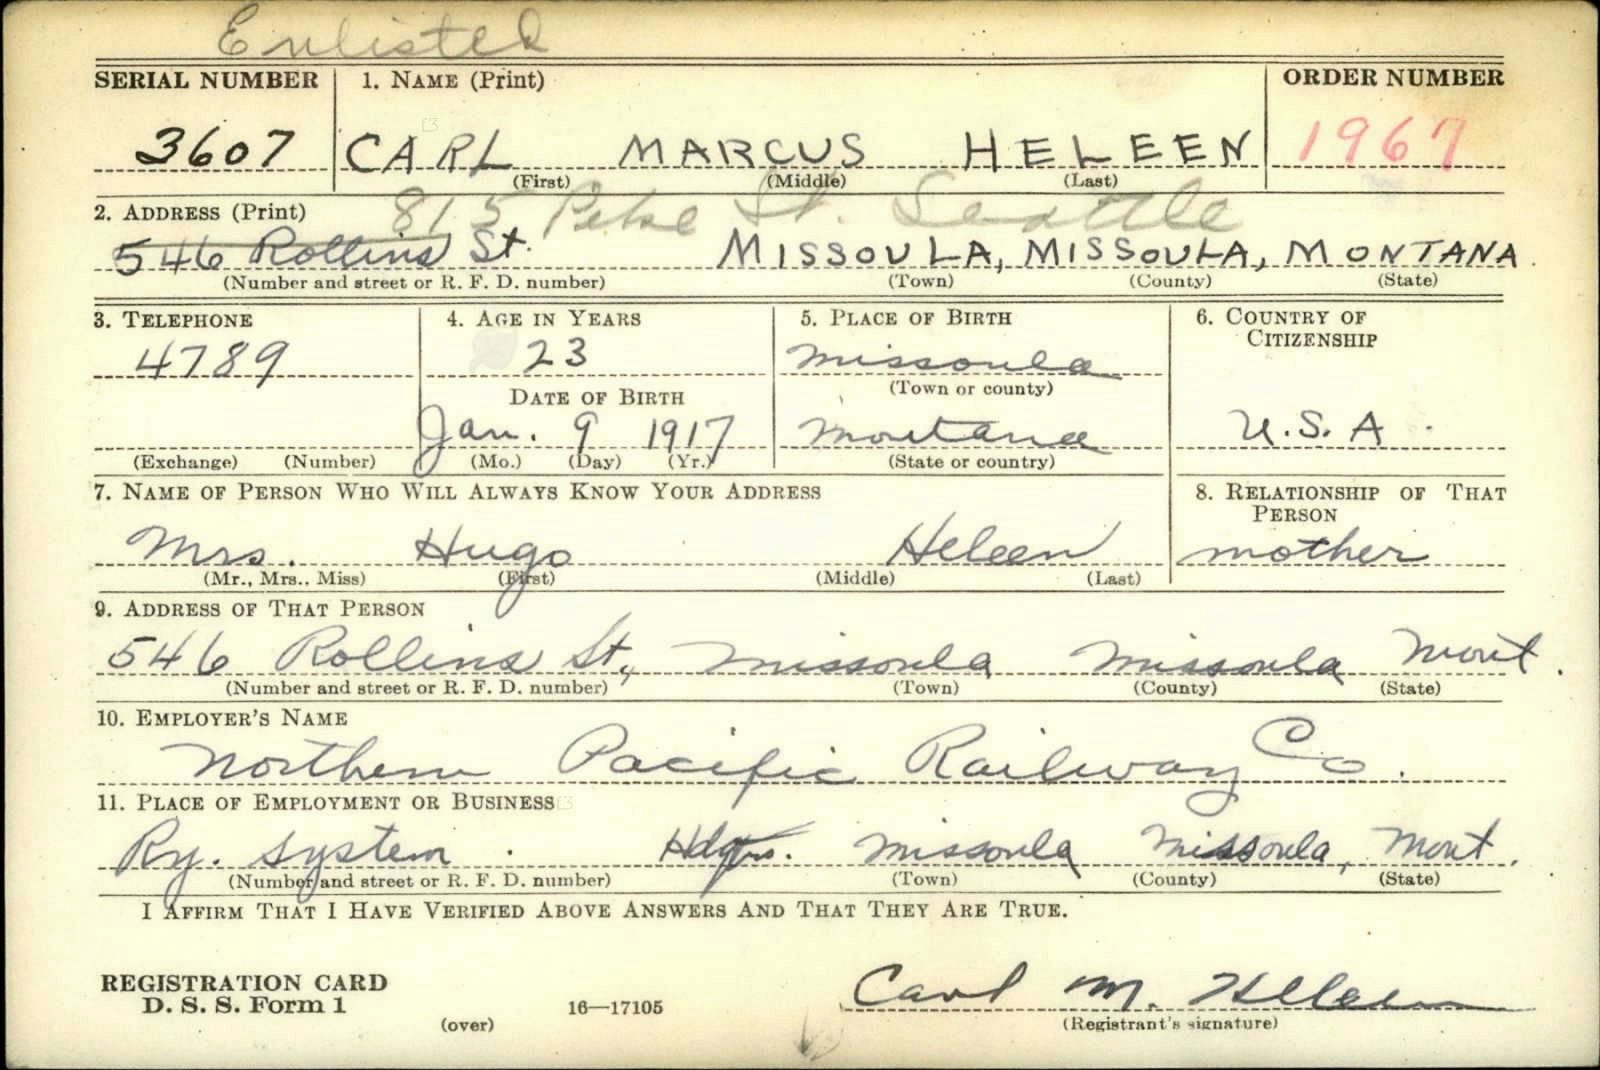 Enlisted
SERIAL NUMBER 1. NAME (Print) ORDER NUMBER
3607 CARL MARCUS HELEEN 1967
(First) (Middle) (Last)
2. ADDRESS (Print) 815 Pike St. Seattle
546 Rollins St. MISSOULA, MISSOULA, MONTANA
(Number and street or R. F. D. number) (Town) (County) (State)
3. TELEPHONE 4. AGE IN YEARS 5. PLACE OF BIRTH 6. COUNTRY OF
CITIZENSHIP
4789 23 Missoula
(Town or county)
DATE OF BIRTH
Jan. 9 1917 Montana U.S.A.
(Exchange) (Number) (Mo.) (Day) (Yr.) (State or country)
7. NAME OF PERSON WHO WILL ALWAYS KNOW YOUR ADDRESS 8. RELATIONSHIP OF THAT
PERSON
Mrs. Hugo Heleen mother
(Mr., Mrs., Miss) (First) (Middle) (Last)
9. ADDRESS OF THAT PERSON
546 Rollins St., Missoula Missoula Mont.
(Number and street or R. F. D. number) (Town) (County) (State)
10. EMPLOYER'S NAME
Northern Pacific Railway Co.
11. PLACE OF EMPLOYMENT OR BUSINESS
Ry. System. Hdqrs. Missoula Missoula, Mont.
(Number and street or R. F. D. number) (Town) (County) (State)
I AFFIRM THAT I HAVE VERIFIED ABOVE ANSWERS AND THAT THEY ARE TRUE.
REGISTRATION CARD
D. S. S. Form 1 16—17105 Carl M. Heleen
(over) (Registrant's signature)